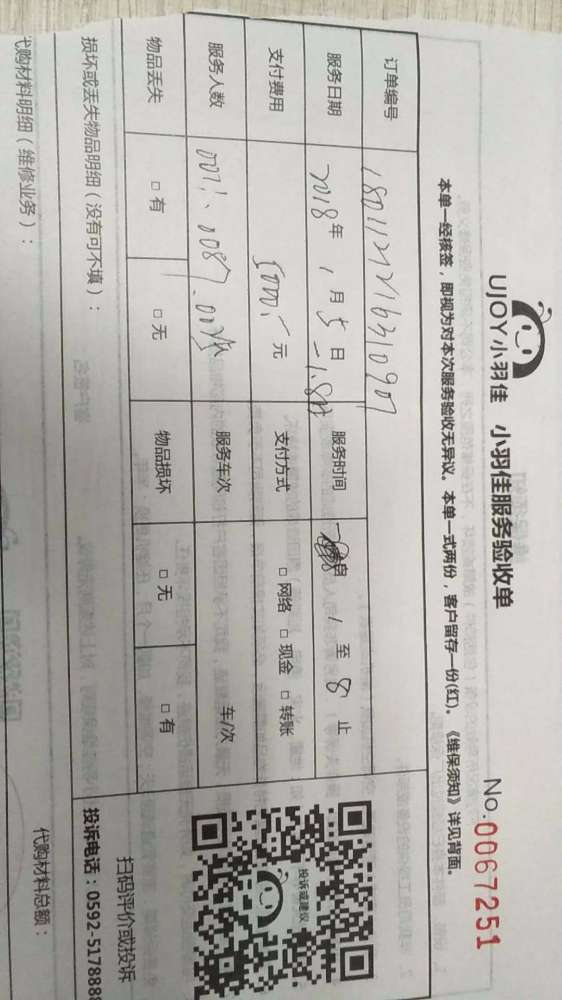 UJOY小羽佳 小羽佳服务验收单
No.0067251
本单一经核签，即视为对本次服务验收无异议。本单一式两份，客户留存一份(红)。《维保须知》详见背面。
订单编号
服务日期 2018年 1月 5日 服务时间 / 至 8 止
支付费用 元 支付方式 □ 网络 □ 现金 □ 转账
服务人数 服务车次 车/次
物品丢失 □ 有 □ 无 物品损坏 □ 无 □ 有
投诉或建议
扫码评价或投诉
投诉电话：0592-5178888
损坏或丢失物品明细（没有可不填）：
代购材料明细（维修业务）：
代购材料总额：